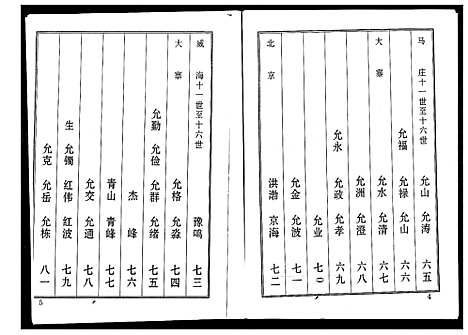 马庄十一世至十六世
允山 允涛 六五
允福 允禄 允山 六六
大寨
允水 允清 六七
允洲 允澄 六八
允永 允政 允孝 六九
允业 七〇
允金 允波 七一
北京
洪渤 京海 七二
4
威海十一世至十六世
豫鸣 七三
大寨
允格 允淼 七四
允勤 允俭 允群 允绪 七五
杰峰 七六
青山 青峰 七七
允交 允通 七八
生 允镯 红伟 红波 七九
允克 允岳 允栋 八一
5